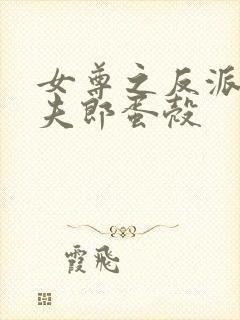 女尊之反派
夫郎蛋殼
霞飛